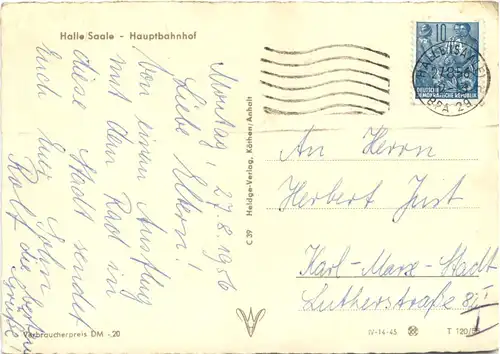 Halle/Saale - Hauptbahnhof
Montag, 27.8.1956
Liebe Eltern!
Von einem Ausflug
mit dem Rad in
diese Stadt sendet
Euch Euer Sohn
Rolf die besten
Grüße
Verbraucherpreis DM -,20
C 39 Heldge-Verlag, Köthen/Anhalt
10
DEUTSCHE
DEMOKRATISCHE REPUBLIK
HALLE (SAALE)
BPA 29
An Herrn
Herbert Just
Karl-Marx-Stadt
Lutherstraße
IV-14-45
T 120/56